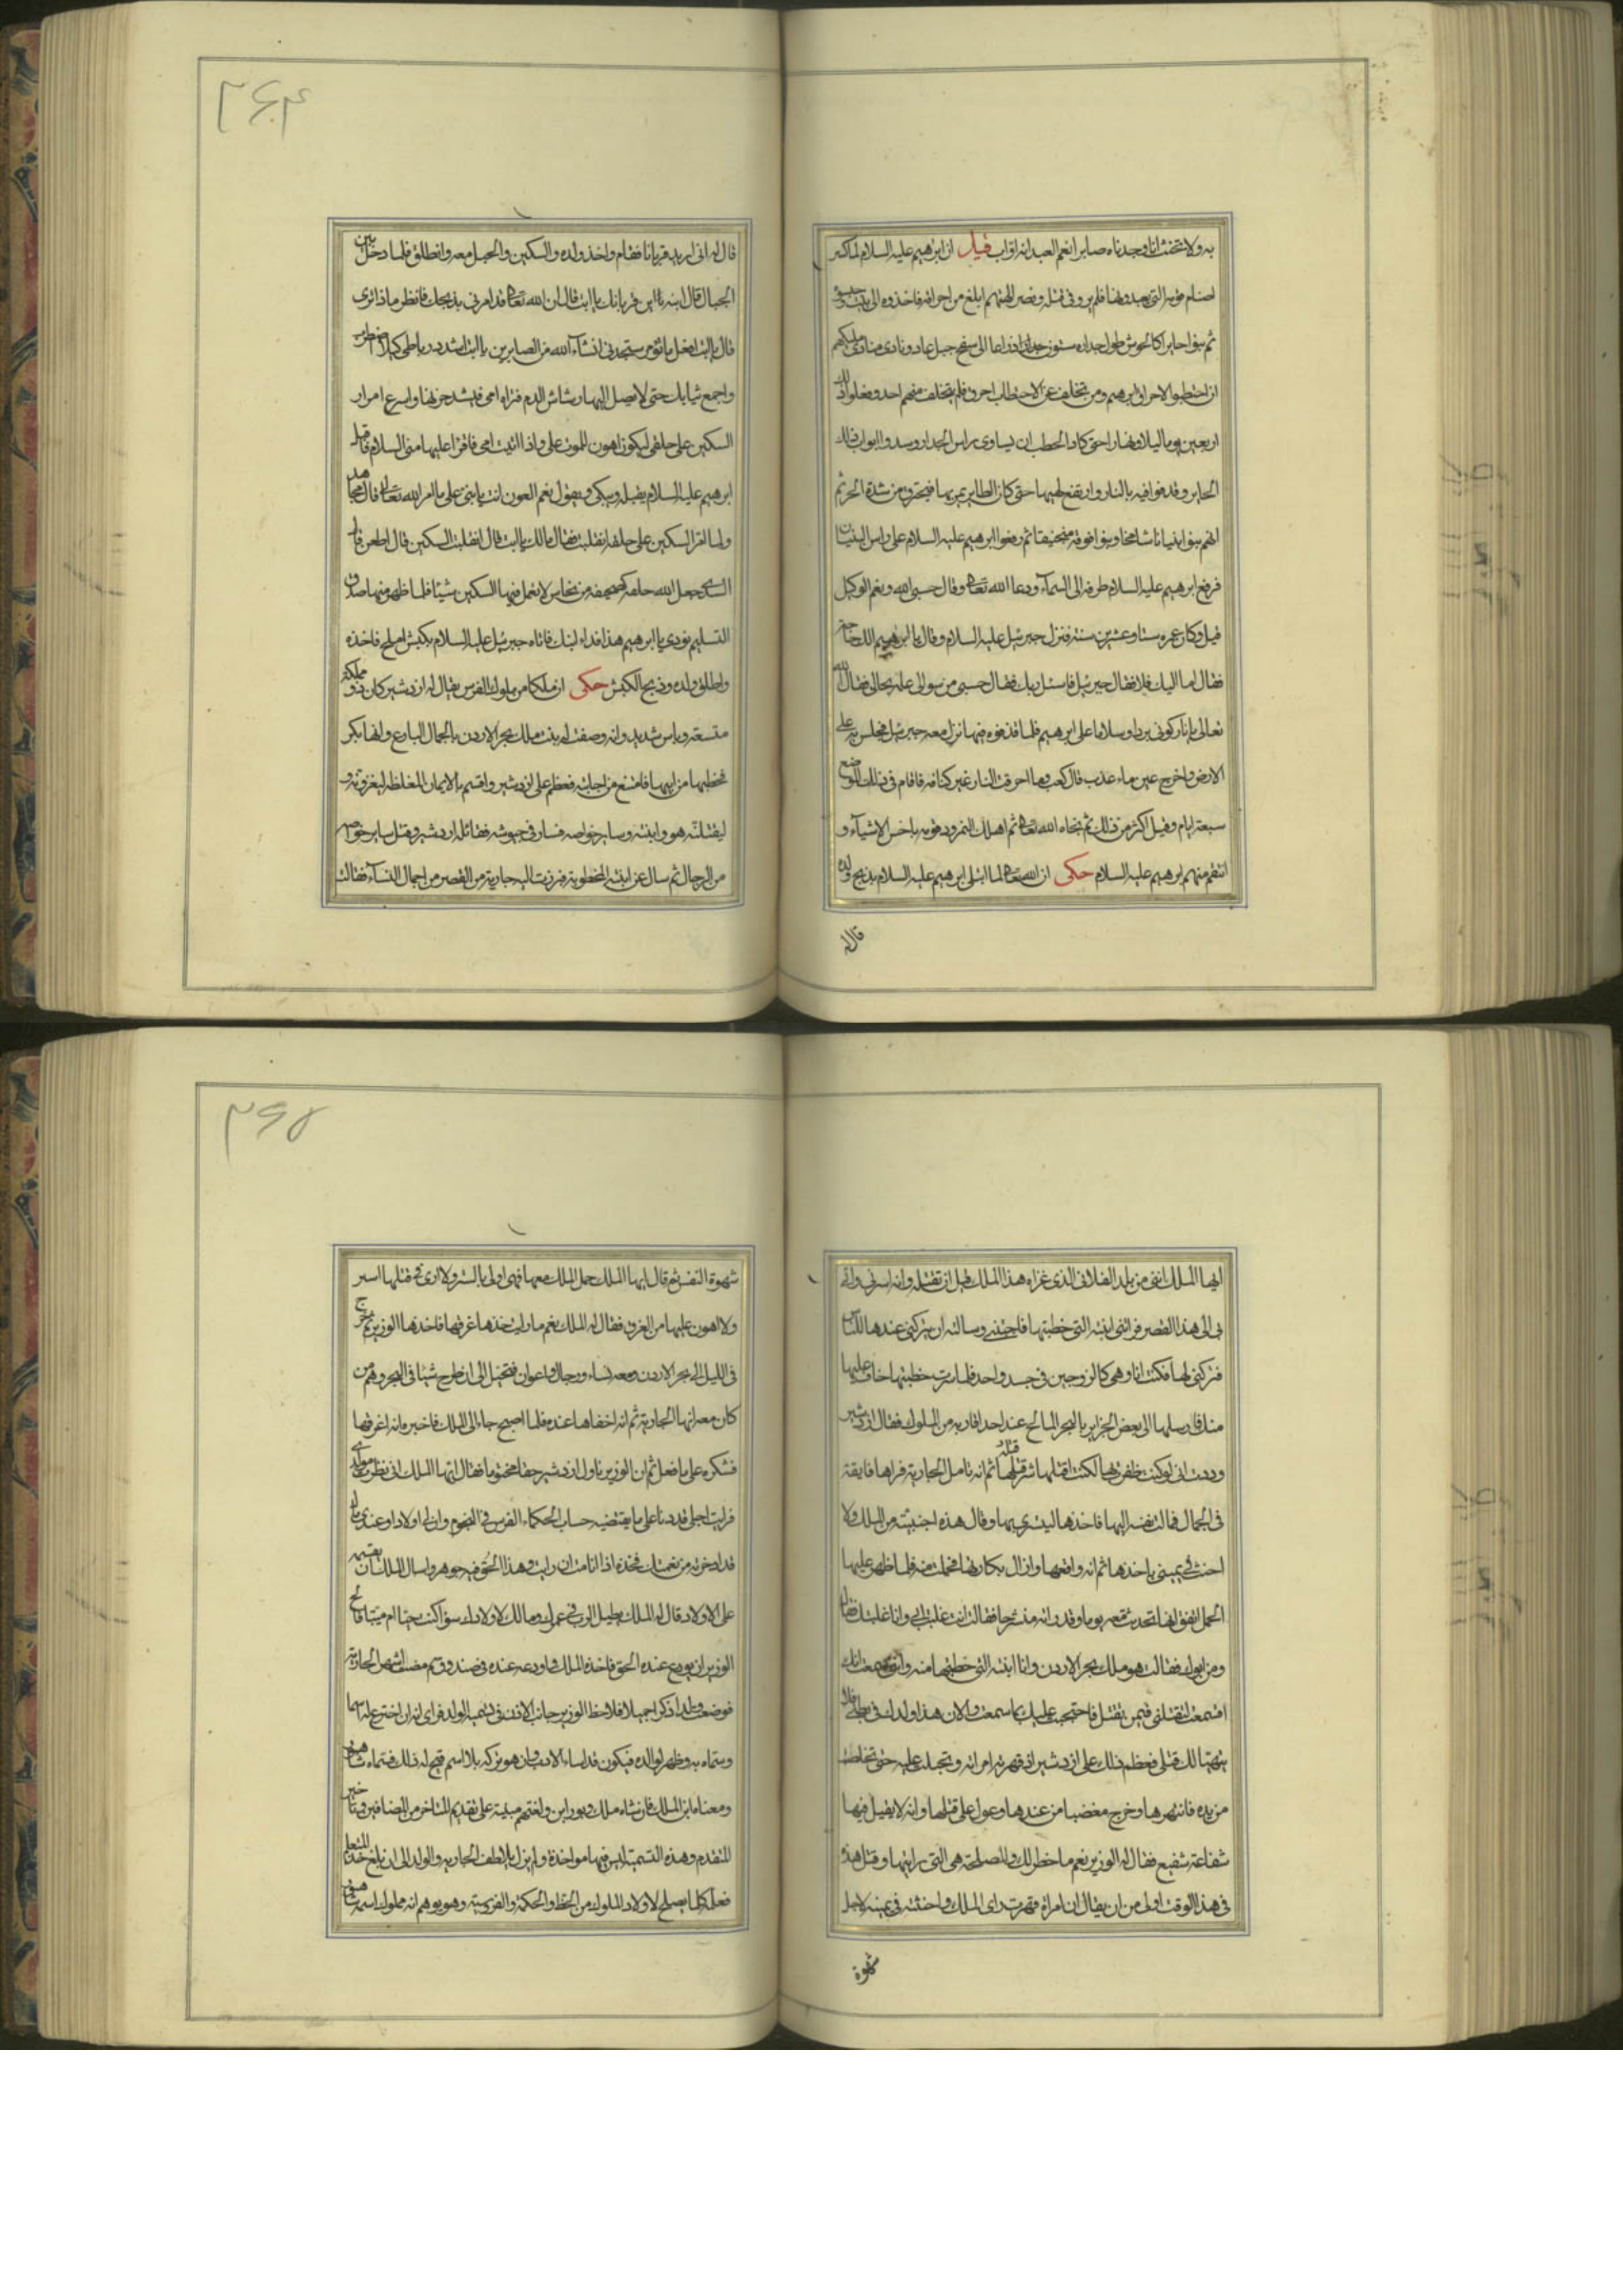 به ولا تحنث انا وجدناه صابرا نعم العبد انه اواب قيل ان ابرهيم عليه السلام لما كسر
اصنام قومه التي يعبدونها فلم يروا في قتله ونصر الهتهم ابلغ من احراقه فاخذوه الى بيت
ثم بنوا حايرا كالحوش طول جداره ستون ذراعا الى سفح جبل عال ونادى منادى ملكهم
ان احتطبوا لاحراق ابرهيم ومن تخلف عن الاحتطاب احرق فلم يتخلف منهم احد وفعلوا ذلك
اربعين يوما ليلا ونهارا حتى كاد الحطب ان يساوى راس الجدار وسدوا ابواب ذلك
الحاير وقذفوا فيه بالنار وارتفع لهيبها حتى كان الطاير يمر بها فيحترق من شدة الحر ثم
انهم بنوا بنيانا شامخا وبنوا فوقه منجنيقا ثم رفعوا ابرهيم عليه السلام على راس البنيان
فرفع ابرهيم عليه السلام طرفه الى السمآء ودعا الله تعالى وقال حسبى الله ونعم الوكيل
قيل وكان عمره ستا وعشرين سنة فنزل جبرئيل عليه السلام وقال يا ابرهيم الك حاجة
فقال اما اليك فلا فقال جبرئيل فاسئل ربك فقال حسبى من سوالى علمه بحالى فقال الله
تعالى يا نار كونى بردا وسلاما على ابرهيم فلما قذفوه فيها نزل معه جبرئيل فجلس به على
الارض واخرج عين ماء عذب قال كعب وما احرقت النار غير كتافه فاقام في ذلك الموضع
سبعة ايام وقيل اكثر من ذلك ثم نجاه الله تعالى ثم اهلك النمرود وقومه باخس الاشيآء و
انتقم منهم ابرهيم عليه السلام حكى ان الله تعالى لما ابتلى ابرهيم عليه السلام بذبح ولده
قال له
٢٦٤
قال له انى اريد قربانا فقام واخذ ولده والسكين والحبل معه وانطلق فلما دخل بين
الجبال قال ابنه يا ابت اين قربانك يا ابت قال ان الله تعالى قد امرنى بذبحك فانظر ماذا ترى
قال يا ابت افعل ما تؤمر ستجدنى انشآء الله من الصابرين يا ابت اشدد رباطى كيلا اضطرب
واجمع ثيابك حتى لا يصل اليها رشاش الدم فتراه امى فيشتد حزنها واسرع امرار
السكين على حلقى ليكون اهون للموت على واذا اتيت امى فاقرا عليها منى السلام فاقبل
ابرهيم عليه السلام يقبله ويبكى ويقول نعم العون انت يا بنى على ما امر الله تعالى قال مجاهد
ولما امر السكين على حلقه انقلبت فقال مالك يا ابت قال انقلبت السكين قال اطعن قال
السدى جعل الله حلقه كصحيفة من نحاس لا تعمل فيها السكين شيئا فلما ظهر منهما صدق
التسليم نودى يا ابرهيم هذا فداء ابنك فاتاه جبرئيل عليه السلام بكبش املح فاخذه
واطلق ولده وذبح الكبش حكى ان ملكا من ملوك الفرس يقال له اردشير كان ذو مملكة
متسعة وباس شديد وانه وصفت له بنت ملك بحر الاردن بالجمال البارع وانها بكر
فخطبها من ابيها فامتنع من اجابته فعظم على اردشير واقسم بالايمان المغلظه ليغزونه و
ليقتلنه هو وابنته وساير خواصه فسار في جيوشه فقاتله اردشير وقتل ساير خواصه
من الرجال ثم سال عن ابنته المخطوبة فبرزت اليه جارية من القصر من اجمال النسآء فقالت
ايها الملك اننى من بلد الفلانى الذى غزاه هذا الملك قبل ان تقتله وانه اسرنى واتى
بى الى هذا القصر فراتنى ابنته التى خطبتها فاحبتنى وسالته ان يتركنى عندها
فتركنى لها فكنت انا وهى كالزوجين فى جسد واحد فلما سرت خطبتها خاف عليها
منك فارسلها الى بعض الجزاير بالبحر المالح عند احد اقاربه من الملوك فقال اردشير
وددت انى لو كنت ظفرت بها لكنت اقتلها شر قتله ثم انه تامل الجارية فراها فايقة
فى الجمال فمالت نفسه اليها فاخذها ليتسرى بها وقال هذه اجنبية من الملك ولا
احنث فى يمينى باخذها ثم انه واقعها وازال بكارتها فحملت منه فلما ظهر عليها
الحمل اتفق انها تحدثت معه يوما وقد راته منشرحا فقالت انت غلبت ابى وانا غلبتك فقال
ومن ابوك فقالت هو ملك بحر الاردن وانا ابنته التى خطبتها منه واننى سمعت انك
اقسمت لتقتلنى فيمن تقتل فاحتجبت عليك بما سمعت والان هذا ولدك فى بطنى فلا
يتهيا لك قتلى فعظم ذلك على اردشير اذ قهرته امراته وتحيلت عليه حتى تخلصت
من يده فانتهرها وخرج مغضبا من عندها وعول على قتلها وانه لا يقبل فيها
شفاعة شفيع فقال له الوزير نعم ما خطر لك والمصلحة هى التى رايتها وقتل هذه
فى هذا الوقت اولى من ان يقال ان امراة قهرت راى الملك واحنثته فى يمينه لاجل
شهوة
٢٦٥
شهوة النفس ثم قال ايها الملك حمل الملك معها فهى اولى بالستر ولا ارى فى قتلها استر
ولا اهون عليها من الغرق فقال له الملك نعم ما رايت خذها غرقها فاخذها الوزير ثم خرج
فى الليل الى بحر الاردن ومعه نساء ورجال واعوان فتحيل الى ان طرح شيئا فى البحر وهم من
كان معه انها الجارية ثم انه اخفاها عنده فلما اصبح جاء الى الملك فاخبره انه اغرقها
فشكره على ما فعل ثم ان الوزير ناول اردشير حقا مختوما فقال ايها الملك انى نظرت مولدى
فرايت اجلى قد دنا على ما يقتضيه حساب الحكماء الفرس فى النجوم وان لى اولاد او عندى مال
قد ادخرته من نعمتك فخذه اذا انا مت ان رايت وهذا الحق فيه جوهر واسال الملك ان يقسمه
على الاولاد قال له الملك يطيل الرب فى عمرك ومالك لاولادك سواء كنت حيا ام ميتا فالح
الوزير ان يودع عنده الحق فاخذه الملك واودعه عنده فى صندوق ثم مضت اشهر الجارية
فوضعت ولدا ذكرا جميلا فلاحظ الوزير جانب الادب فى تسمية الولد فراى انه ان اخترع له اسما
وسماه به وظهر لوالده فيكون قد اساء الادب وان هو تركه بلا اسم قبح له ذلك فسماه شاه
ومعناه ابن الملك فان شاه ملك وبور ابن ولغتهم مبنية على تقديم المتاخر من المضافين وتاخير
المتقدم وهذه التسمية ليس فيها مواخذة ولم يزل يلاطف الجاريه والولد الى ان بلغ حد التعليم
فعلمه كلما يصلح لاولاد الملوك من الخط والحكمة والفروسية وهو يوهم انه مملوك اسمه شاه